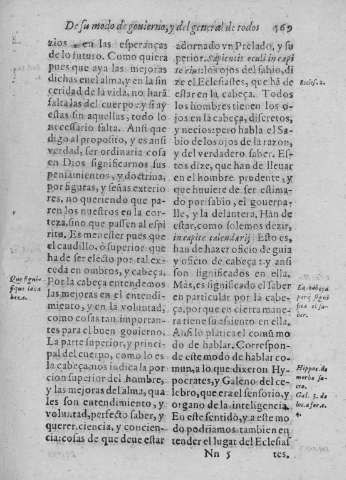 De su modo de gouierno, y del general de todos 469
zios en las esperanças
de lo futuro. Como quiera
pues que aya las mejoras
dichas en el alma, y en la sin
ceridad de la vida, no hará
falta las del cuerpo: y si ay
estas sin aquellas, todo lo
necessario falta. Ansi que
digo al proposito, y es ansi
verdad, ser ordinaria cosa
en Dios significarnos sus
pensamientos, y doctrina,
por figuras, y señas exterio
res, no queriendo que pa-
ren los nuestros en la cor-
teza, sino que passen al espi
ritu. Es menester pues que
el caudillo, ó superior que
ha de ser electo por tal ex-
ceda en ombros, y cabeça.
Por la cabeça entendemos
las mejoras en el entendi-
miento, y en la voluntad,
como cosas tan importan-
tes para el buen gouierno.
La parte superior, y princi-
pal del cuerpo, como lo es
la cabeça, nos indica la por
cion superior del hombre,
y las mejoras del alma, qua
les son entendimiento, y
voluntad, perfecto saber, y
querer, ciencia, y concien-
cia: cosas de que deue estar
Que signi-
fique la ca
beça.
adornado vn Prelado, y su
perior. Sapientis oculi in capi
te eius: los ojos del sabio, di-
ze el Eclesiastes, que han de
estar en la cabeça. Todos
los hombres tienen los o-
jos en la cabeça, discretos,
y necios: pero habla el Sa-
bio de los ojos de la razon,
y del verdadero saber. Es-
tos dize, que han de lleuar
en el hombre prudente, y
que huuiere de ser estima-
do por sabio, el gouerna-
lle, y la delantera. Han de
estar, como solemos dezir,
in capite calendarij: Esto es,
han de hazer oficio de guia
y oficio de cabeça: y ansi
son significados en ella.
Mas, es significado el saber
en particular por la cabe-
ça, porque en cierta mane-
ra tiene su asiento en ella.
Ansi lo platica el comũ mo
do de hablar. Correspon-
de este modo de hablar co-
mun, a lo que dixeron Hy-
pocrates, y Galeno del ce-
lebro, que era el sensorio, y
organo de la inteligencia.
En este sentido, y a este mo
do podriamos tambien en
tender el lugar del Eclesias
Ecles. 2.
La cabeça
porq̃ signi
fica el sa-
ber.
Hippoc. de
morbo sa-
cro.
Nn 5 tes.